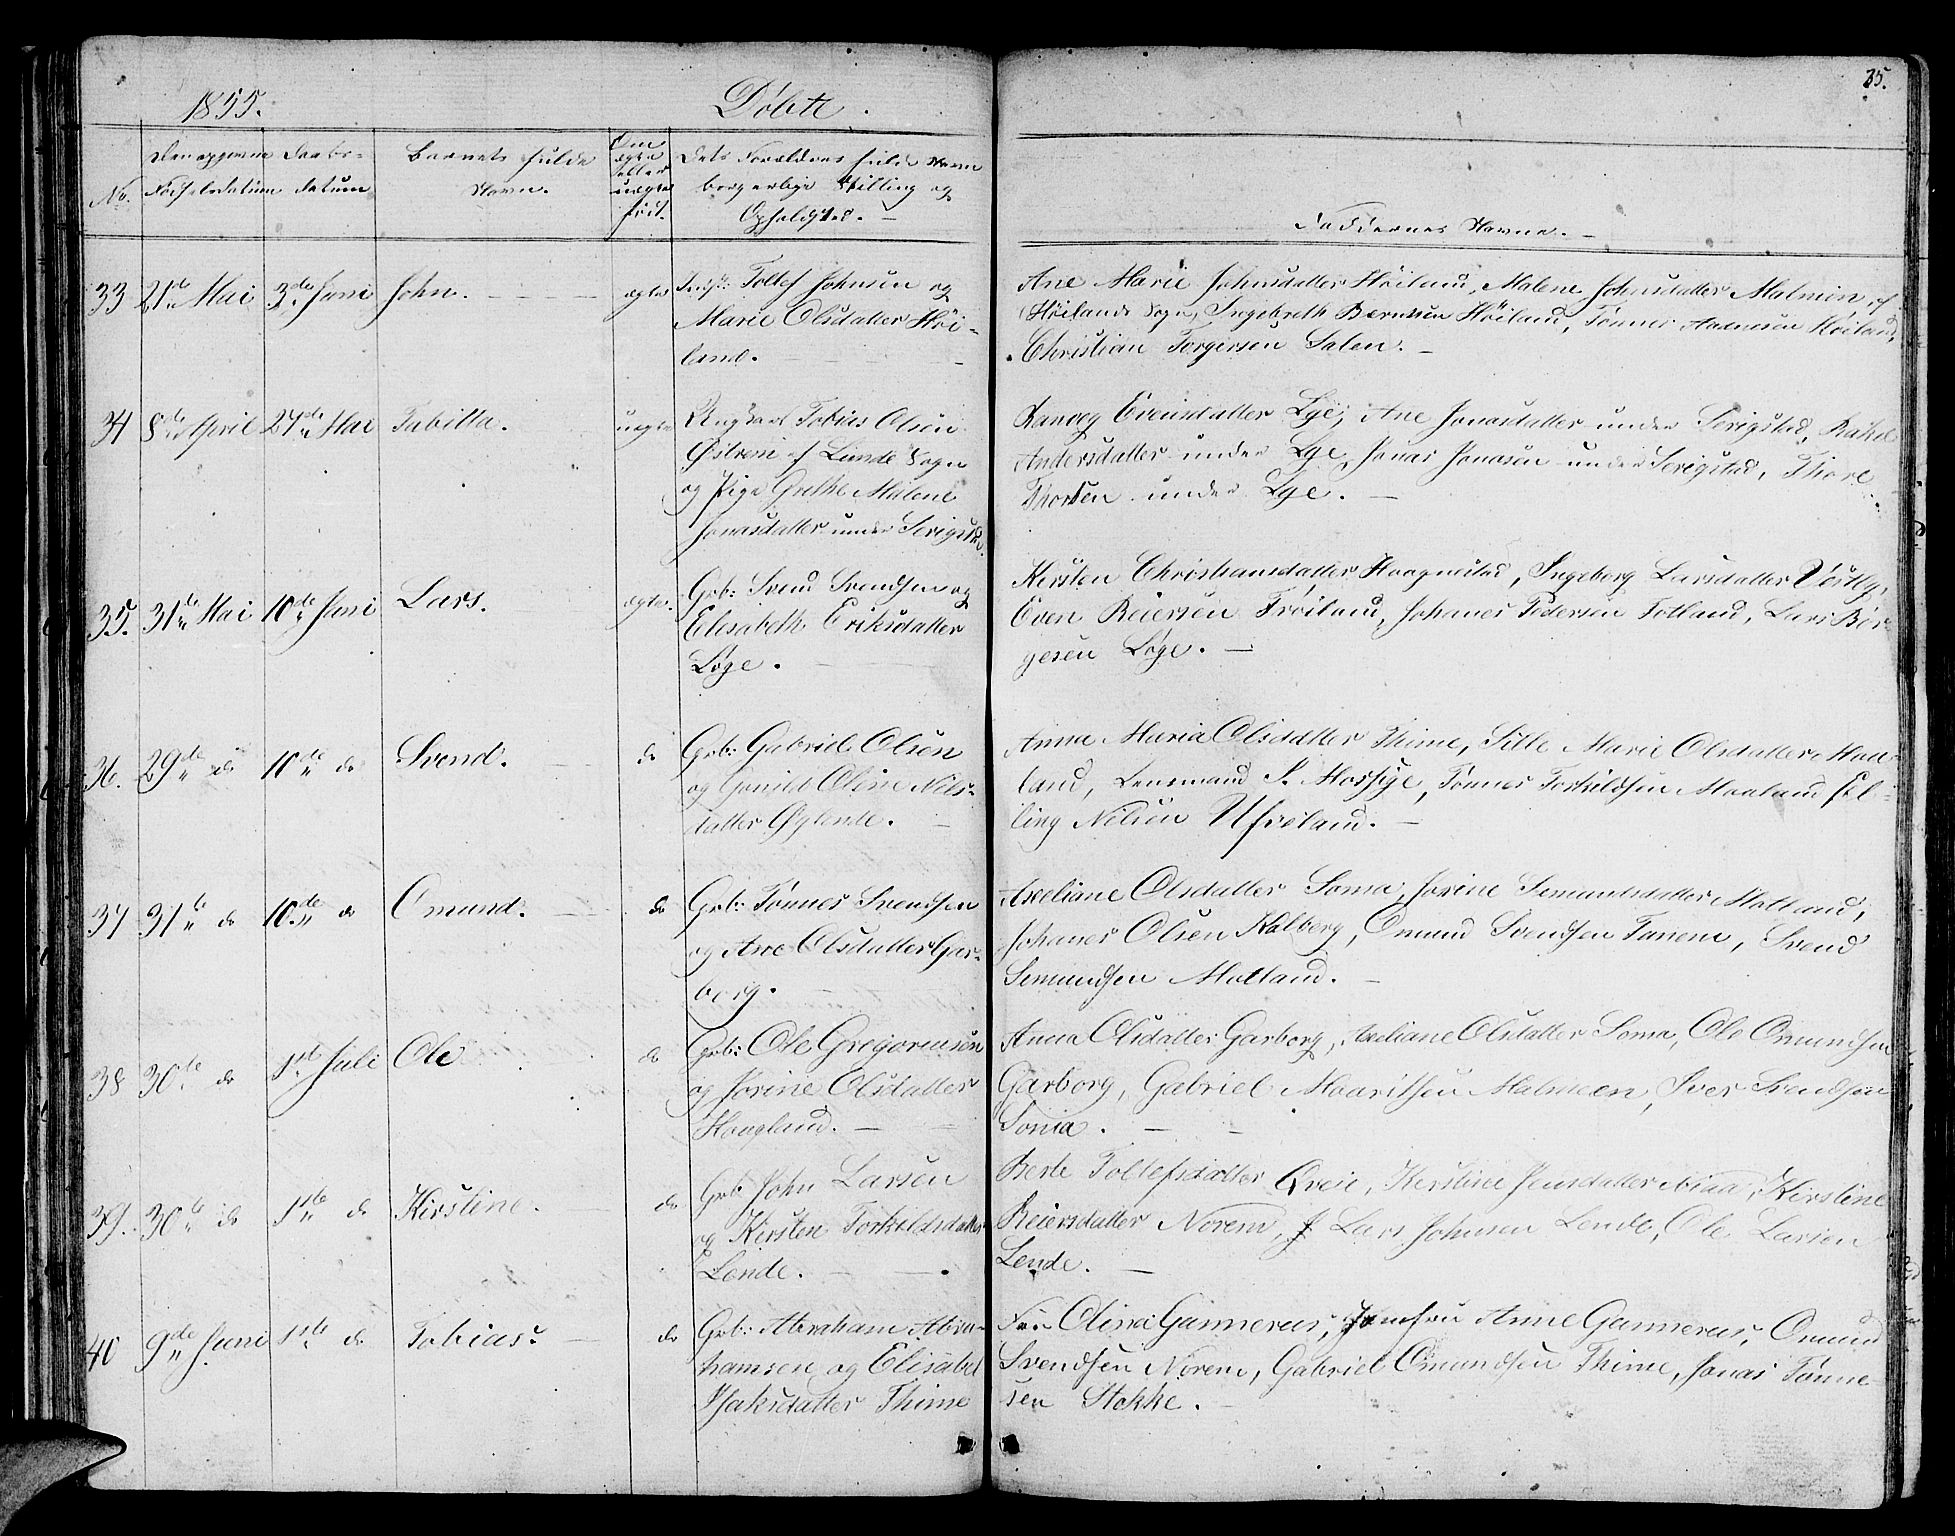 1855. Døbte.
35.
No.
Den opgivne Fødselsdatum
Daabsdatum
Barnets fulde Navn.
Om ægte eller uægte født.
Dets Forældres fulde Navn borgerlige Stilling og Opholdssted. —
Faddernes Navne. —
33 21de Mai 3de Juni John. — ægte Tollef Johnsen og
Marie Olsdatter Höi-
land. —
Ane Marie Johnsdatter Höiland, Malene Johnsdatter Malmin af
Höilands Sogn, Ingebreth Berntsen Höiland, Tønnes Aadnesen Höiland,
Christian Torgersen Salen. —
34 8de April 27de Mai Tabitta. uægte Ungkarl Tobias Olsen
Østrem af Lunde Sogn
og Pige Grethe Malene
Jonasdatter under Serigstad.
Ranveg Evensdatter Lye, Ane Jonasdatter under Serigstad, Rakel
Andersdatter under Lye, Jonas Jonasen under Serigstad, Thore
Thorsen under Lye. —
35. 31te Mai 10de Juni Lars. ægte. Grb: Svend Svendsen og
Elisabeth Eriksdatter
Løge. —
Kirsten Christiansdatter Haagnestad, Ingeborg Larsdatter Vestly,
Even Reiersen Frøiland, Johanes Pedersen Totland, Lars Bør-
gesen Løge. —
36. 29de do 10de do Svend. do Grb: Gabriel Olsen
og Gunild Oline Nils-
datter Øglende. —
Anna Maria Olsdatter Thime, Sille Marie Olsdatter Maa-
land, Lensmand P. Mossige, Tønnes Torkildsen Maaland, El-
ling Nilsen Ufveland. —
37 31te do 10de do Omund. do Grb: Tønnes Svendsen
og Ane Olsdatter Gar-
borg. —
Axeliane Olsdatter Soma, Jorine Semundsdatter Motland,
Johanes Olsen Kalberg, Omund Svendsen Tanem, Svend
Semundsen Motland. —
38 30te do 1ste Juli Ole do Grb: Ole Gregoriusen
og Jorine Olsdatter
Haagland. —
Anna Olsdatter Garborg, Axeliane Olsdatter Soma, Ole Omundsen
Garborg, Gabriel Mauritsen Malmeen, Iver Svendsen
Soma. —
39. 30te do 1ste do Kirstine. do Grb John Larsen
og Kirsten Torkildsdatter
Lende. —
Berte Tollefsdatter Qveie, Kerstine Jensdatter Njaa, Kirstine
Reiersdatter Norem, Lars Johnsen Lende, Ole Larsen
Lende. —
40 9de Juni 1ste do Tobias. do Grb: Abraham Abra-
hamsen og Elisabet
Isaksdatter Thime
Fru Olina Gannerus, Jomfru Anne Gannerus, Omund
Svendsen Norem, Gabriel Omundsen Thime, Jonas Tønne-
sen Stokke. —